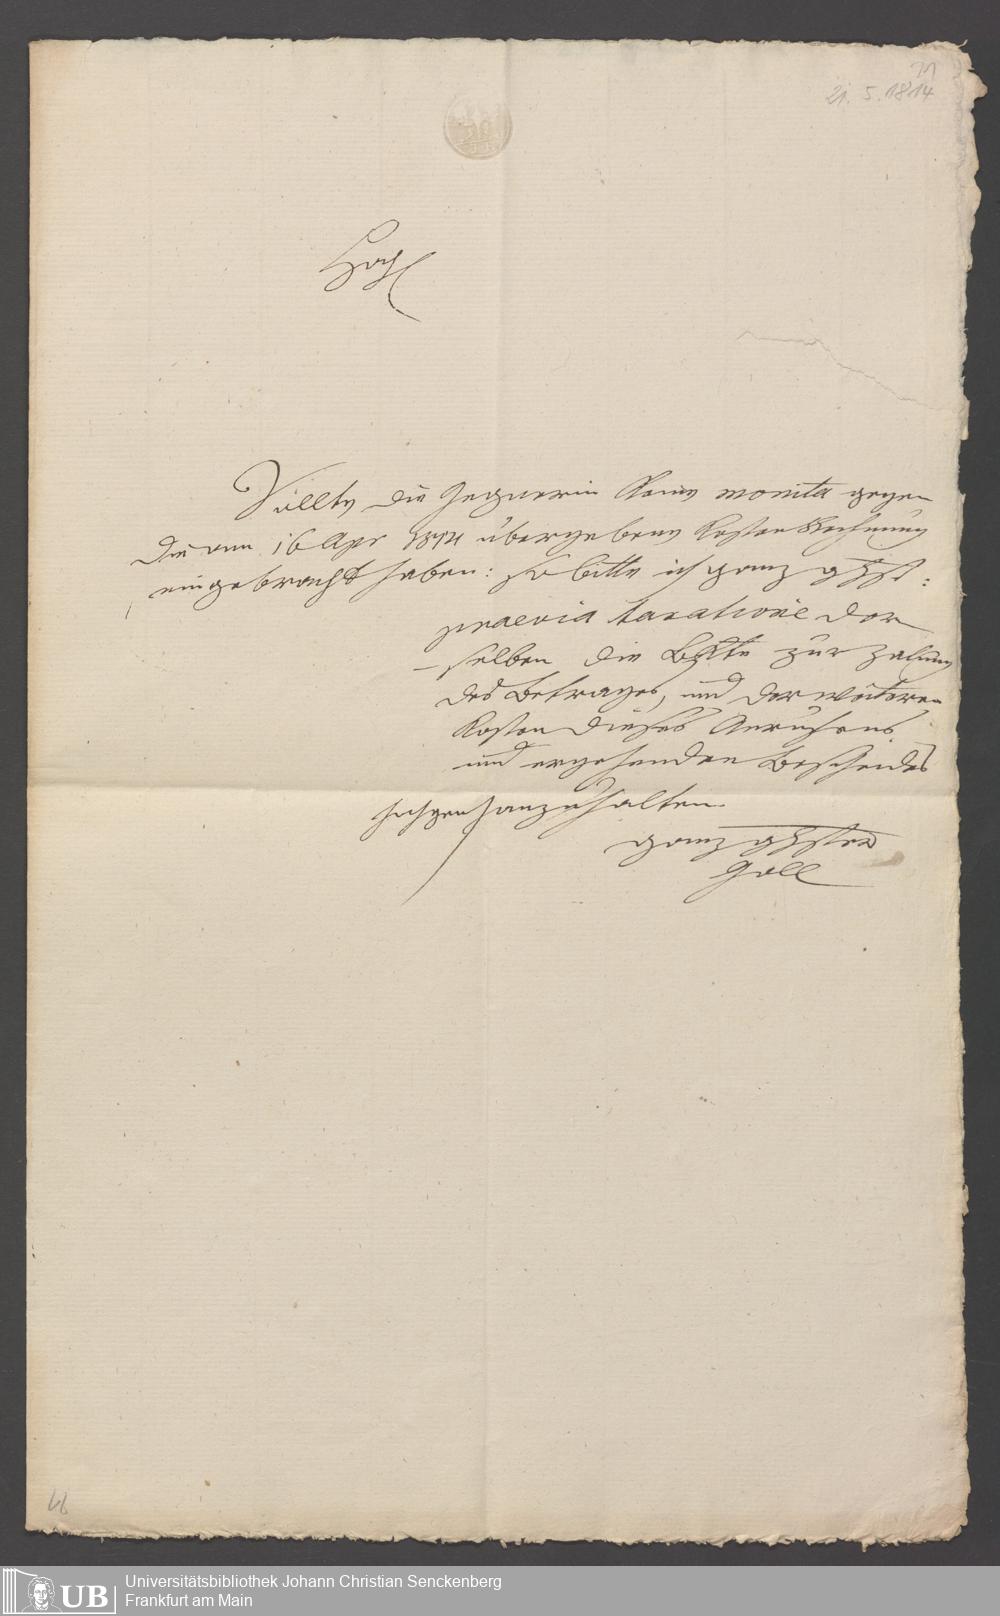 71
21. 5. 1814
Hoch
Sollte die Gegnerin keine monita gegen
die am 16 Apr 1814 übergebene Kosten Rechnung
eingebracht haben: so bitte ich ganz
praevia taxatione der
selben die Bkte zur Zalung
des Betrages, und der weiteren
Kosten dieses Anrufens
und ergehenden Bescheides
anzuhalten.
ganz
Goll
UB
Universitätsbibliothek Johann Christian Senckenberg
Frankfurt am Main